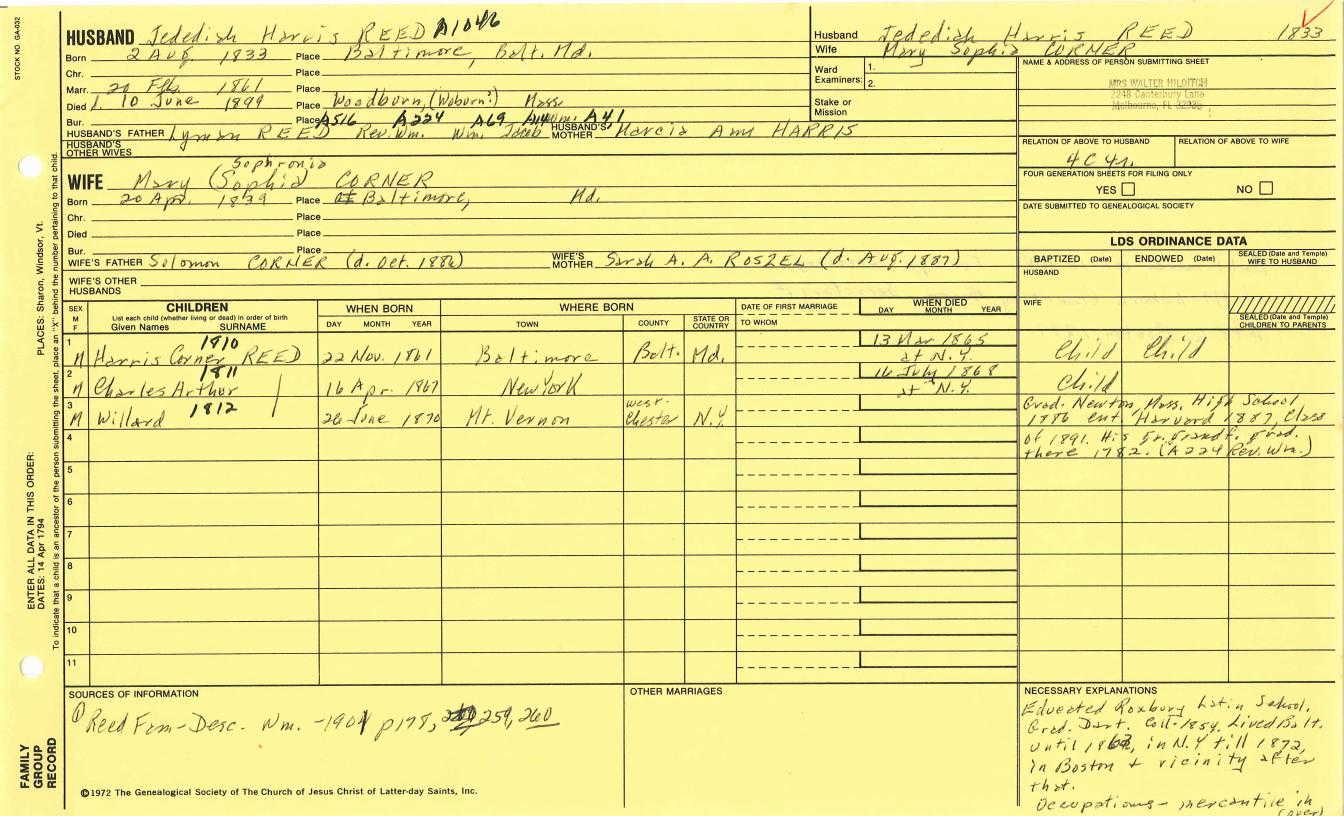 STOCK NO. GA-032
HUSBAND Jedediah Harris REED A1046
Born 2 Aug. 1833 Place Baltimore, Balt. Md.
Chr. Place
Marr. 20 Feb. 1861 Place
Died 10 June 1899 Place Woodburn, (Woburn?) Mass
Bur. Place A516 A224 A69 A41
HUSBAND'S FATHER Lyman REED Rev. Wm. Wm. Jacob HUSBAND'S MOTHER Marcia Ann HARRIS
HUSBAND'S OTHER WIVES
Sophronia
WIFE Mary (Sophia) CORNER
Born 20 Apr. 1839 Place at Baltimore, Md.
Chr. Place
Died Place
Bur. Place
WIFE'S FATHER Solomon CORNER (d. Oct. 1886) WIFE'S MOTHER Sarah A. A. ROSZEL (d. Aug. 1887)
WIFE'S OTHER HUSBANDS
Husband Jedediah Harris REED 1833
Wife Mary Sophia CORNER
Ward Examiners: 1.
2.
Stake or Mission
NAME & ADDRESS OF PERSON SUBMITTING SHEET
MRS WALTER
2248 Canterbury Lane
Melbourne, FL 32935
RELATION OF ABOVE TO HUSBAND RELATION OF ABOVE TO WIFE
4C 4r.
FOUR GENERATION SHEETS FOR FILING ONLY
YES NO
DATE SUBMITTED TO GENEALOGICAL SOCIETY
LDS ORDINANCE DATA
BAPTIZED (Date) ENDOWED (Date) SEALED (Date and Temple) WIFE TO HUSBAND
HUSBAND
WIFE
SEALED (Date and Temple) CHILDREN TO PARENTS
SEX M F CHILDREN WHEN BORN WHERE BORN DATE OF FIRST MARRIAGE WHEN DIED
List each child (whether living or dead) in order of birth
Given Names SURNAME DAY MONTH YEAR TOWN COUNTY STATE OR COUNTRY TO WHOM DAY MONTH YEAR
1 1810 13 Mar 1865
M Harris Corner REED 22 Nov. 1861 Baltimore Balt. Md. at N.Y. Child Child
2 1811 16 July 1868
M Charles Arthur 16 Apr. 1867 New York at N.Y. Child
3 1812
M Willard 26 June 1870 Mt. Vernon West-Chester N.Y.
Grad. Newton, Mass. High School
1886 ent. Harvard 1887, Class
of 1891. His gr. grandf. grad.
there 1782. (A224 Rev. Wm.)
4
5
6
7
8
9
10
11
SOURCES OF INFORMATION
① Reed Fam-Desc. Wm. -1901 p178, 259, 260
©1972 The Genealogical Society of The Church of Jesus Christ of Latter-day Saints, Inc.
OTHER MARRIAGES
NECESSARY EXPLANATIONS
Educated Roxbury Latin School.
Grad. Dart. Coll-1854. Lived Balt.
until 1863, in N.Y till 1872,
in Boston + vicinity after
that.
Occupations - mercantile in
(over)
PLACES: Sharon, Windsor, Vt.
To indicate that a child is an ancestor of the person submitting the sheet, place an "X" behind the number pertaining to that child.
ENTER ALL DATA IN THIS ORDER:
DATES: 14 Apr 1794
FAMILY
GROUP
RECORD